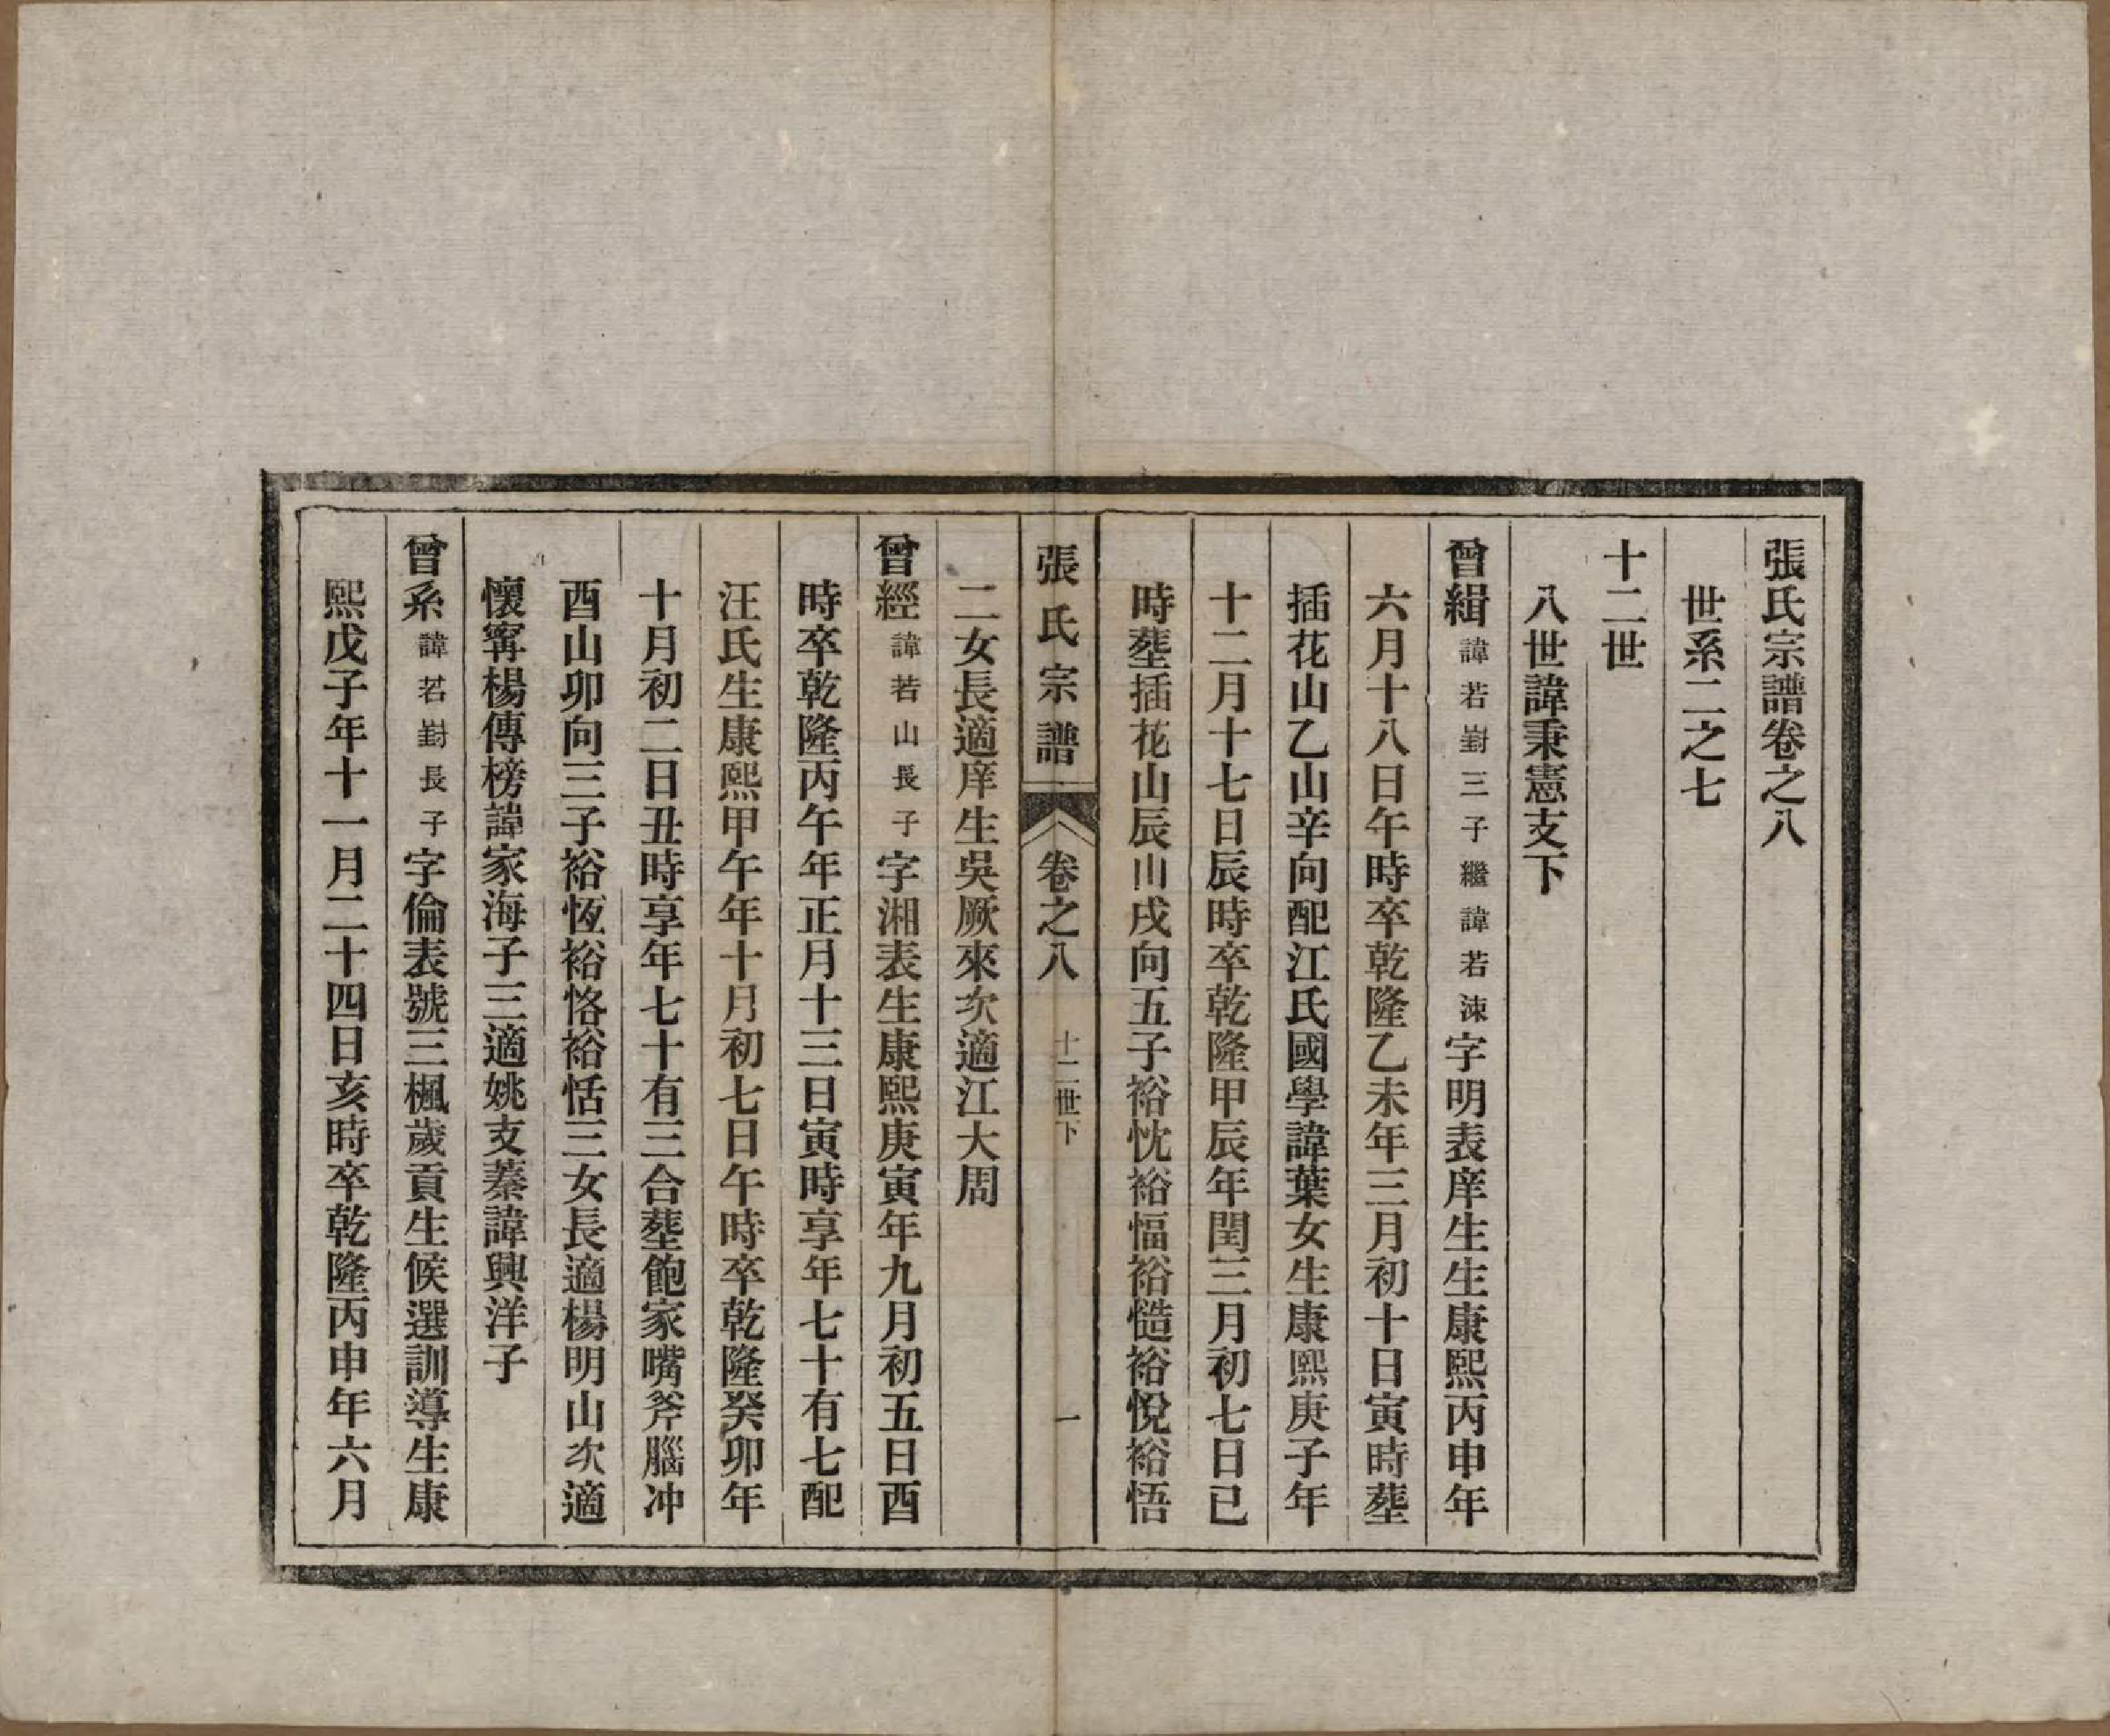 張氏宗譜卷之八
世系二之七
十二世
八世諱秉憲支下
曾緝諱若崶三子繼諱若涑字明表庠生生康熙丙申年
六月十八日午時卒乾隆乙未年三月初十日寅時塟
插花山乙山辛向配江氏國學諱葉女生康熙庚子年
十二月十七日辰時卒乾隆甲辰年閏三月初七日巳
時塟插花山辰山戌向五子裕忱裕愊裕慥裕悅裕悟
張氏宗譜 卷之八 十二世下 一
二女長適庠生吳厥來次適江大周
曾經諱若山長子字湘表生康熙庚寅年九月初五日酉
時卒乾隆丙午年正月十三日寅時享年七十有七配
汪氏生康熙甲午年十月初七日午時卒乾隆癸卯年
十月初二日丑時享年七十有三合塟飽家嘴斧腦冲
酉山卯向三子裕恆裕恪裕恬三女長適楊明山次適
懷寗楊傳榜諱家海子三適姚支蓁諱興洋子
曾系諱若崶長子字倫表號三楓歲貢生候選訓導生康
熙戊子年十一月二十四日亥時卒乾隆丙申年六月